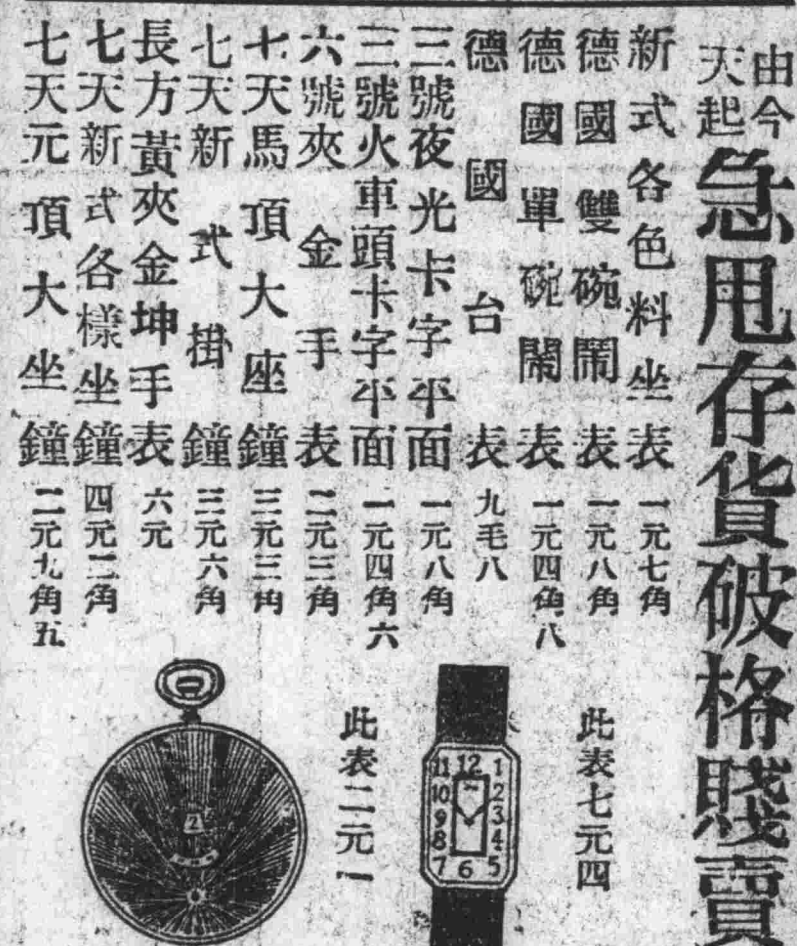 由今
天起
急甩存货破格賤賣
新式各色料坐表 一元七角
德國雙碗鬧表 一元八角
德國單碗鬧表 一元四角八
德國台表 九毛八
三號夜光卡字平面 一元八角
三號火車頭卡字平面 一元四角六
六號夾金手表 二元三角
七天馬頂大座鐘 三元三角
七天新式掛鐘 三元六角
長方黃夾金坤手表 六元
七天新式各樣坐鐘 四元二角
七天元頂大坐鐘 二元九角五
此表七元四
11 12 1
10 2
9 3
8 4
7 6 5
此表二元一
2